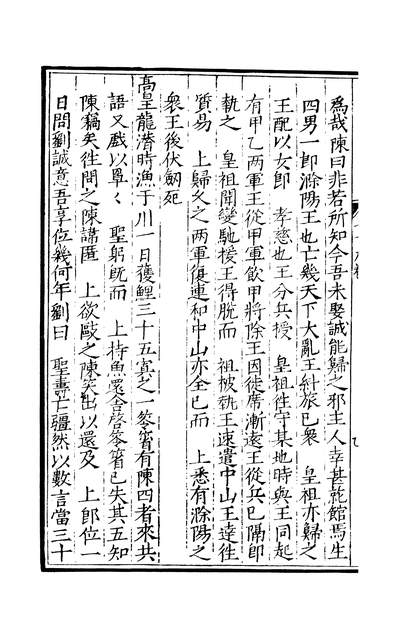 爲哉陳曰非若所知今吾未娶誠能歸之邪主人幸甚乾館焉生
四男一卽滁陽王也亡幾天下大亂王糾旅已衆　皇祖亦歸之
王配以女卽　孝慈也王分兵授　皇祖徃守某地時與王同起
有甲乙兩軍王從甲軍飲甲將除王因徙席漸遠王從兵已隔卽
執之　皇祖聞變馳援王得脫而　祖被執王速遣中山王達徃
質易　上歸久之兩軍復連和中山亦全已而　上悉有滁陽之
衆王後伏劒死
高皇龍潛時漁于川一日獲鯉三十五寘之一笭箵有陳四者來共
語又戲以單單　聖躬既而　上持魚還舍啓笭箵已失其五知
陳竊矣徃問之陳講匿　上欲毆之陳笑出以還及　上卽位一
日問劉誠意吾享位幾何年劉曰　聖壽亡疆然以數言當三十